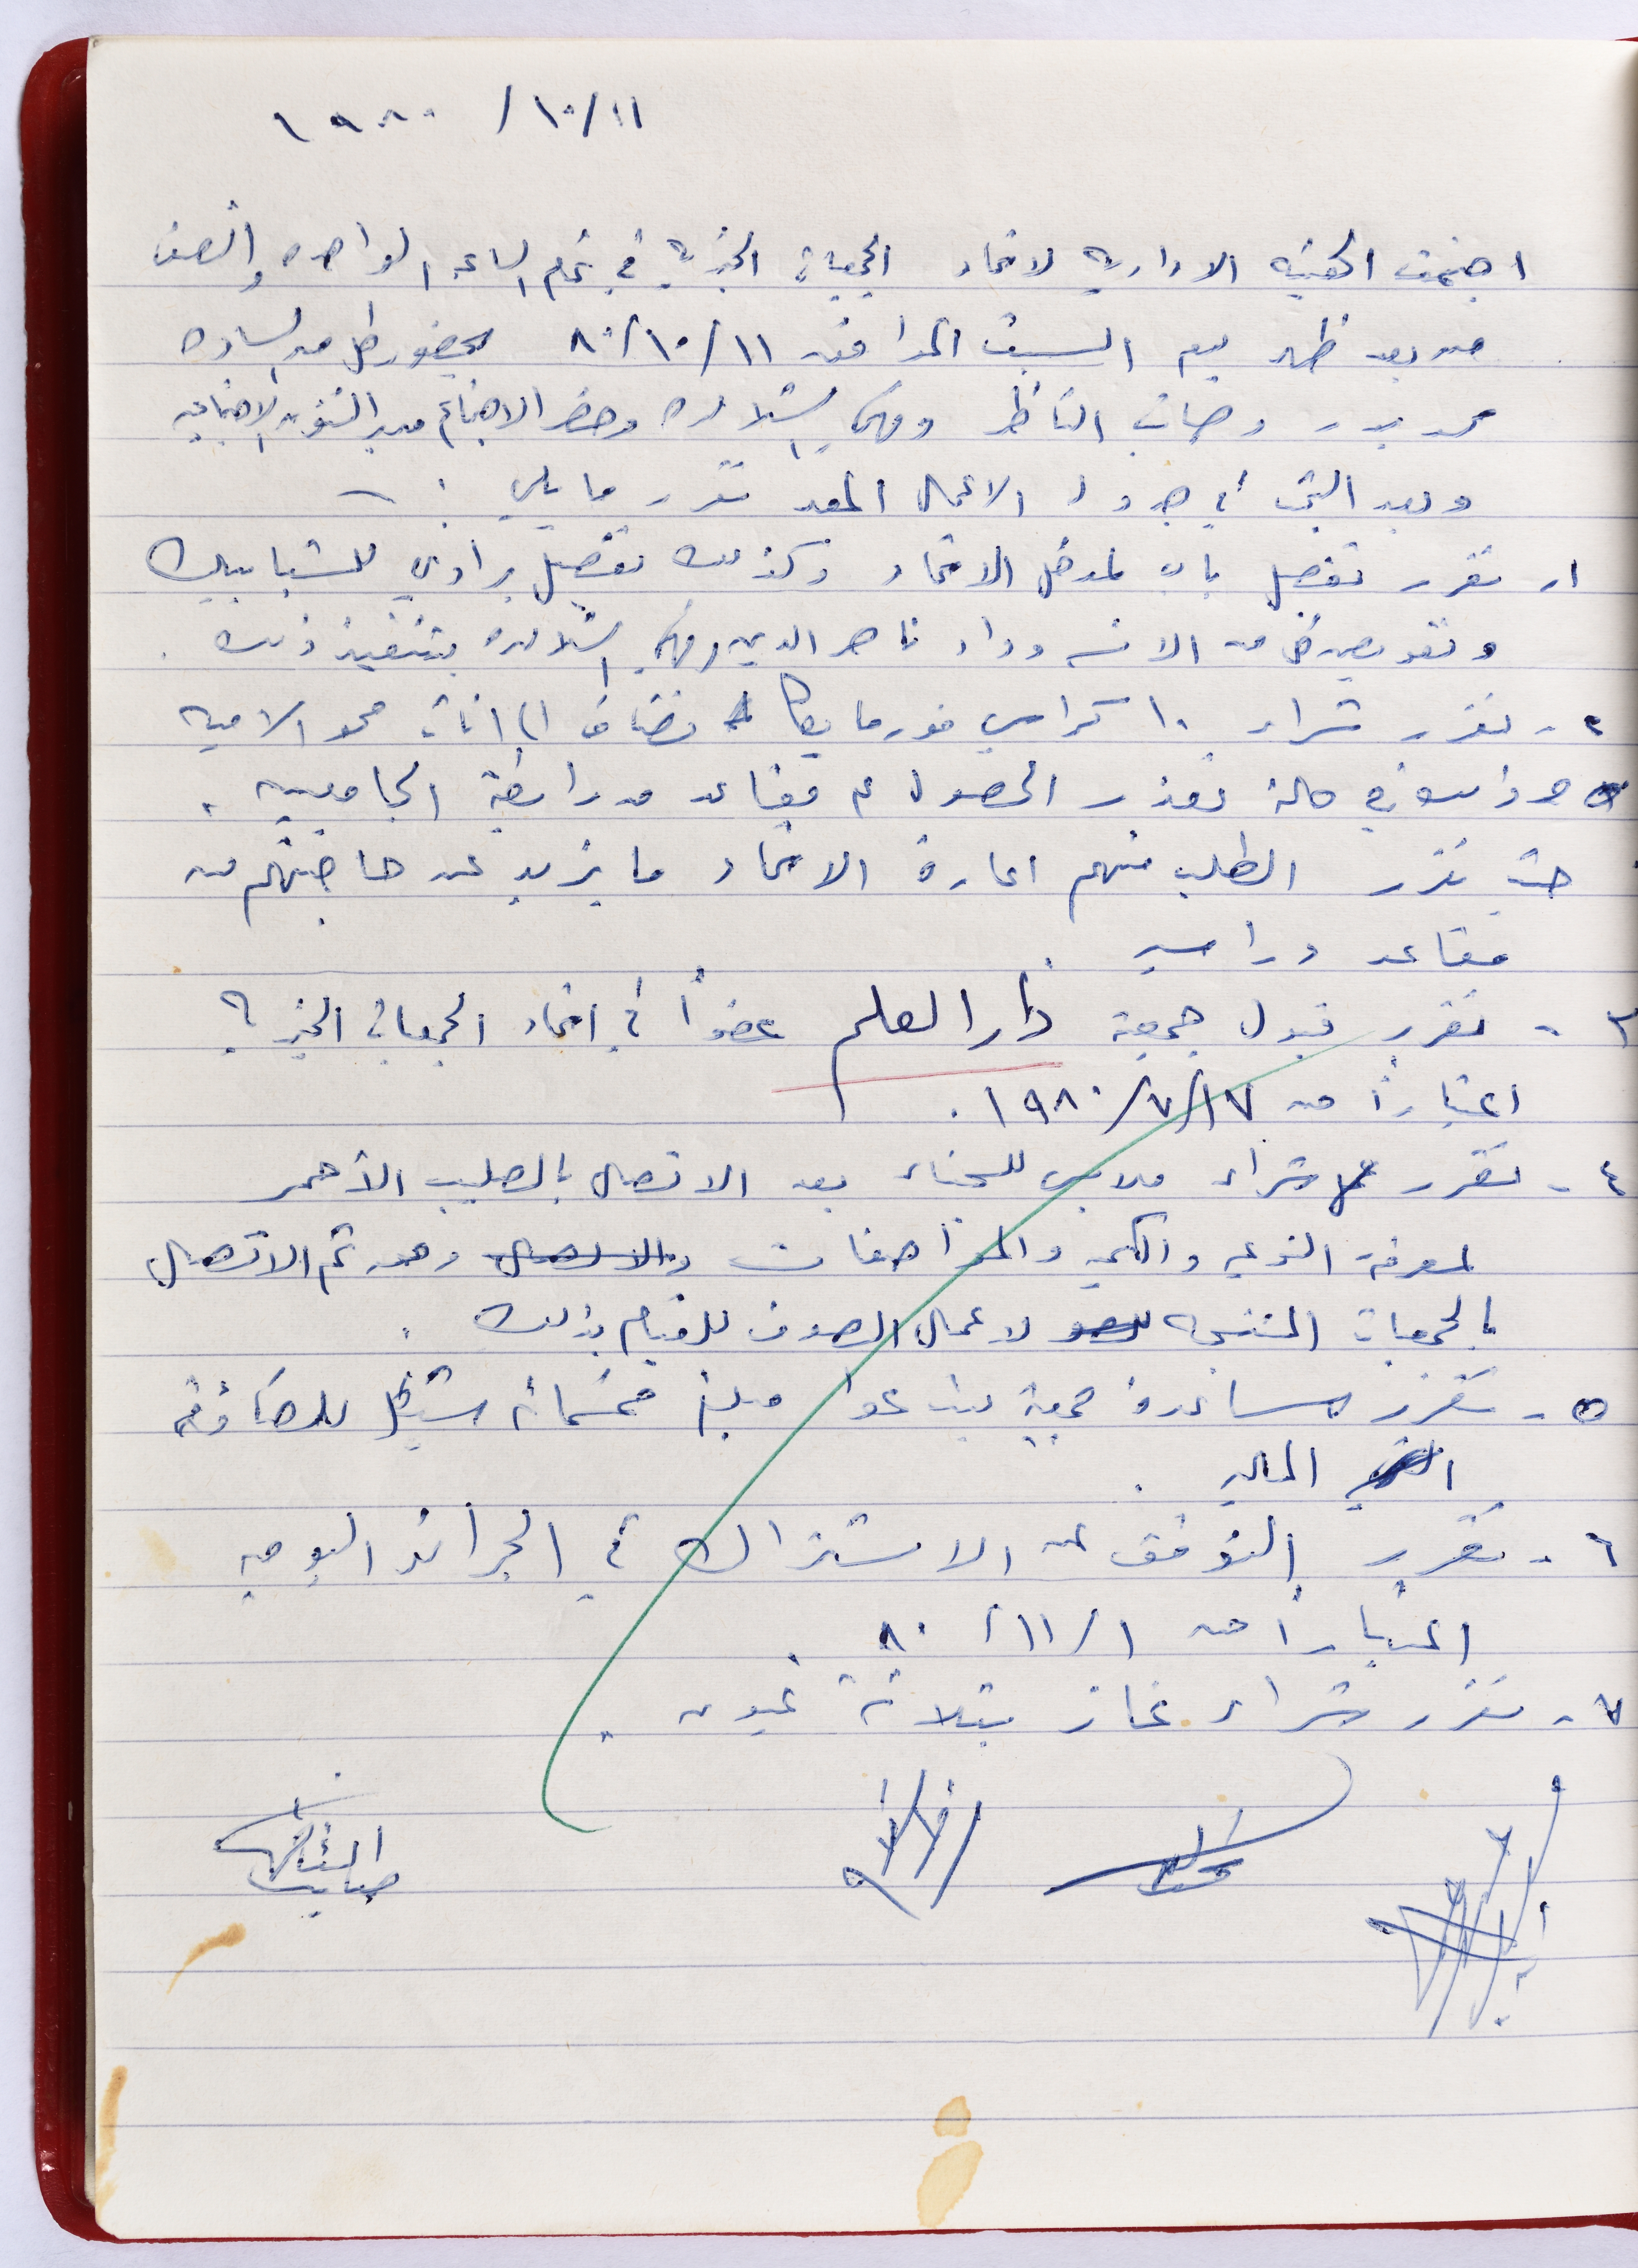 ١١/١٠/ ١٩٨٠
اجتمعت الهيئة الادارية لاتحاد الجمعيات الخيرية في تمام الساعة الواحدة والنصف
من بعد ظهر يوم السبت الموافق ١١/١٠/٨٠ بحضور كل من السادة
محمد بدر وصائب الناظر وحضر الاجتماع مدير الشؤون الاجتماعية
وبعد البحث في جدول الاعمال المعد تقرر ما يلي :-
١- تقرر تفصيل باب لمدخل الاتحاد وكذلك تفصيل براوي للشبابيك
وتفويض كل من الانسه وداد ناصر الدين بتنفيذ ذلك .
٢- تقرر شراء ١٠ كراسي فورمايكا تضاف الى اثاث محو الامية
وذلك في حالة تعذر الحصول على مقاعد من رابطة الجامعيين .
حيث تقرر الطلب منهم اعارة الاتحاد ما يزيد عن حاجتهم من
مقاعد دراسية .
٣- تقرر قبول جمعية دار العلم عضواً في اتحاد الجمعيات الخيرية
اعتباراً من ١٧/٧/١٩٨٠.
٤- تقرر شراء ملابس للسجناء بعد الاتصال بالصليب الأحمر
لمعرفة النوعية والكمية والمواصفات والاتصال ومن ثم الاتصال
بالجمعيات المنتجة لاعمال الصوف للقيام بذلك .
٥- تقرر مساعدة جمعية بيت عوا مبلغ خمسمائة شيكل
المالية .
٦- تقرر التوقف عن الاشتراك في الجرائد اليومية
اعتباراً من ١/١١/ ٨٠ .
٧- تقرر شراء غاز بثلاثة عيون .
صائب الناظر